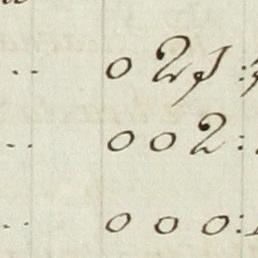 .. 025:
.. 002:
.. 000: